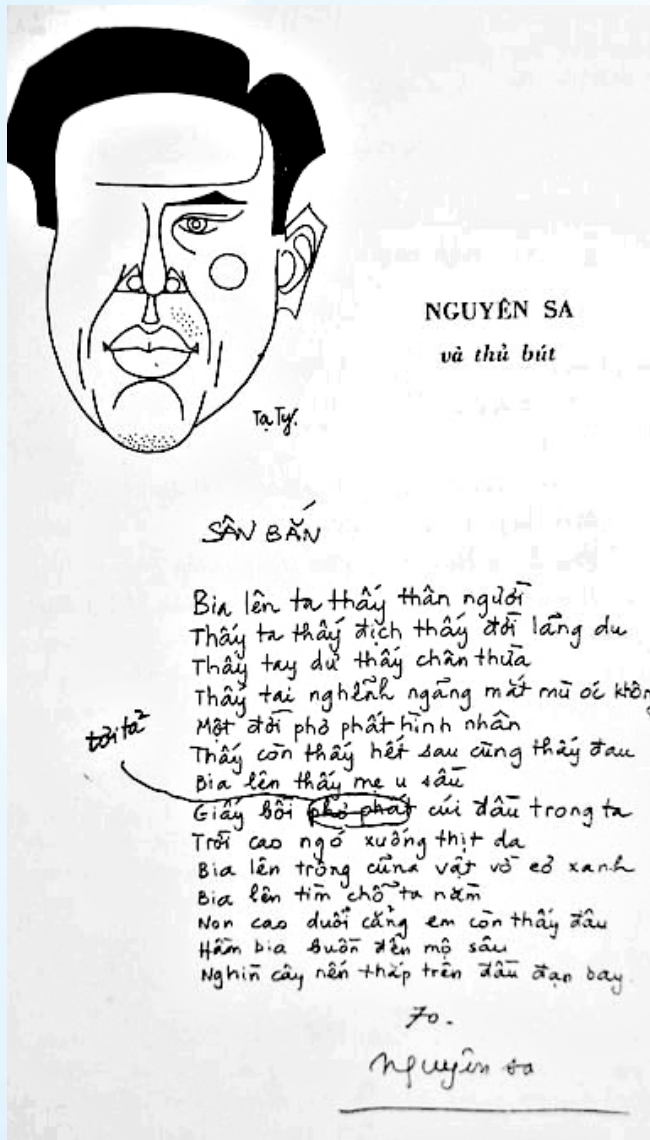 NGUYÊN SA
và thủ bút
Tạ Tỵ.
SÂN BẮN
Bia lên ta thấy thân người
Thấy ta thấy địch thấy đời lãng du
Thấy tay dư thấy chân thừa
Thấy tai nghễnh ngãng mắt mù óc không
Một đời phơ phất hình nhân
Thấy còn thấy hết sau cùng thấy đau
Bia lên thấy mẹ u sầu
tơi tả
Giấy bồi phơ phất cúi đầu trong ta
Trời cao ngó xuống thịt da
Bia lên trông cũng vật vờ cỏ xanh
Bia lên tìm chỗ ta nằm
Non cao duỗi cẳng em còn thấy đâu
Hầm bia buồn đến mộ sâu
Nghìn cây nến thắp trên đầu đạn bay.
70.
Nguyên sa